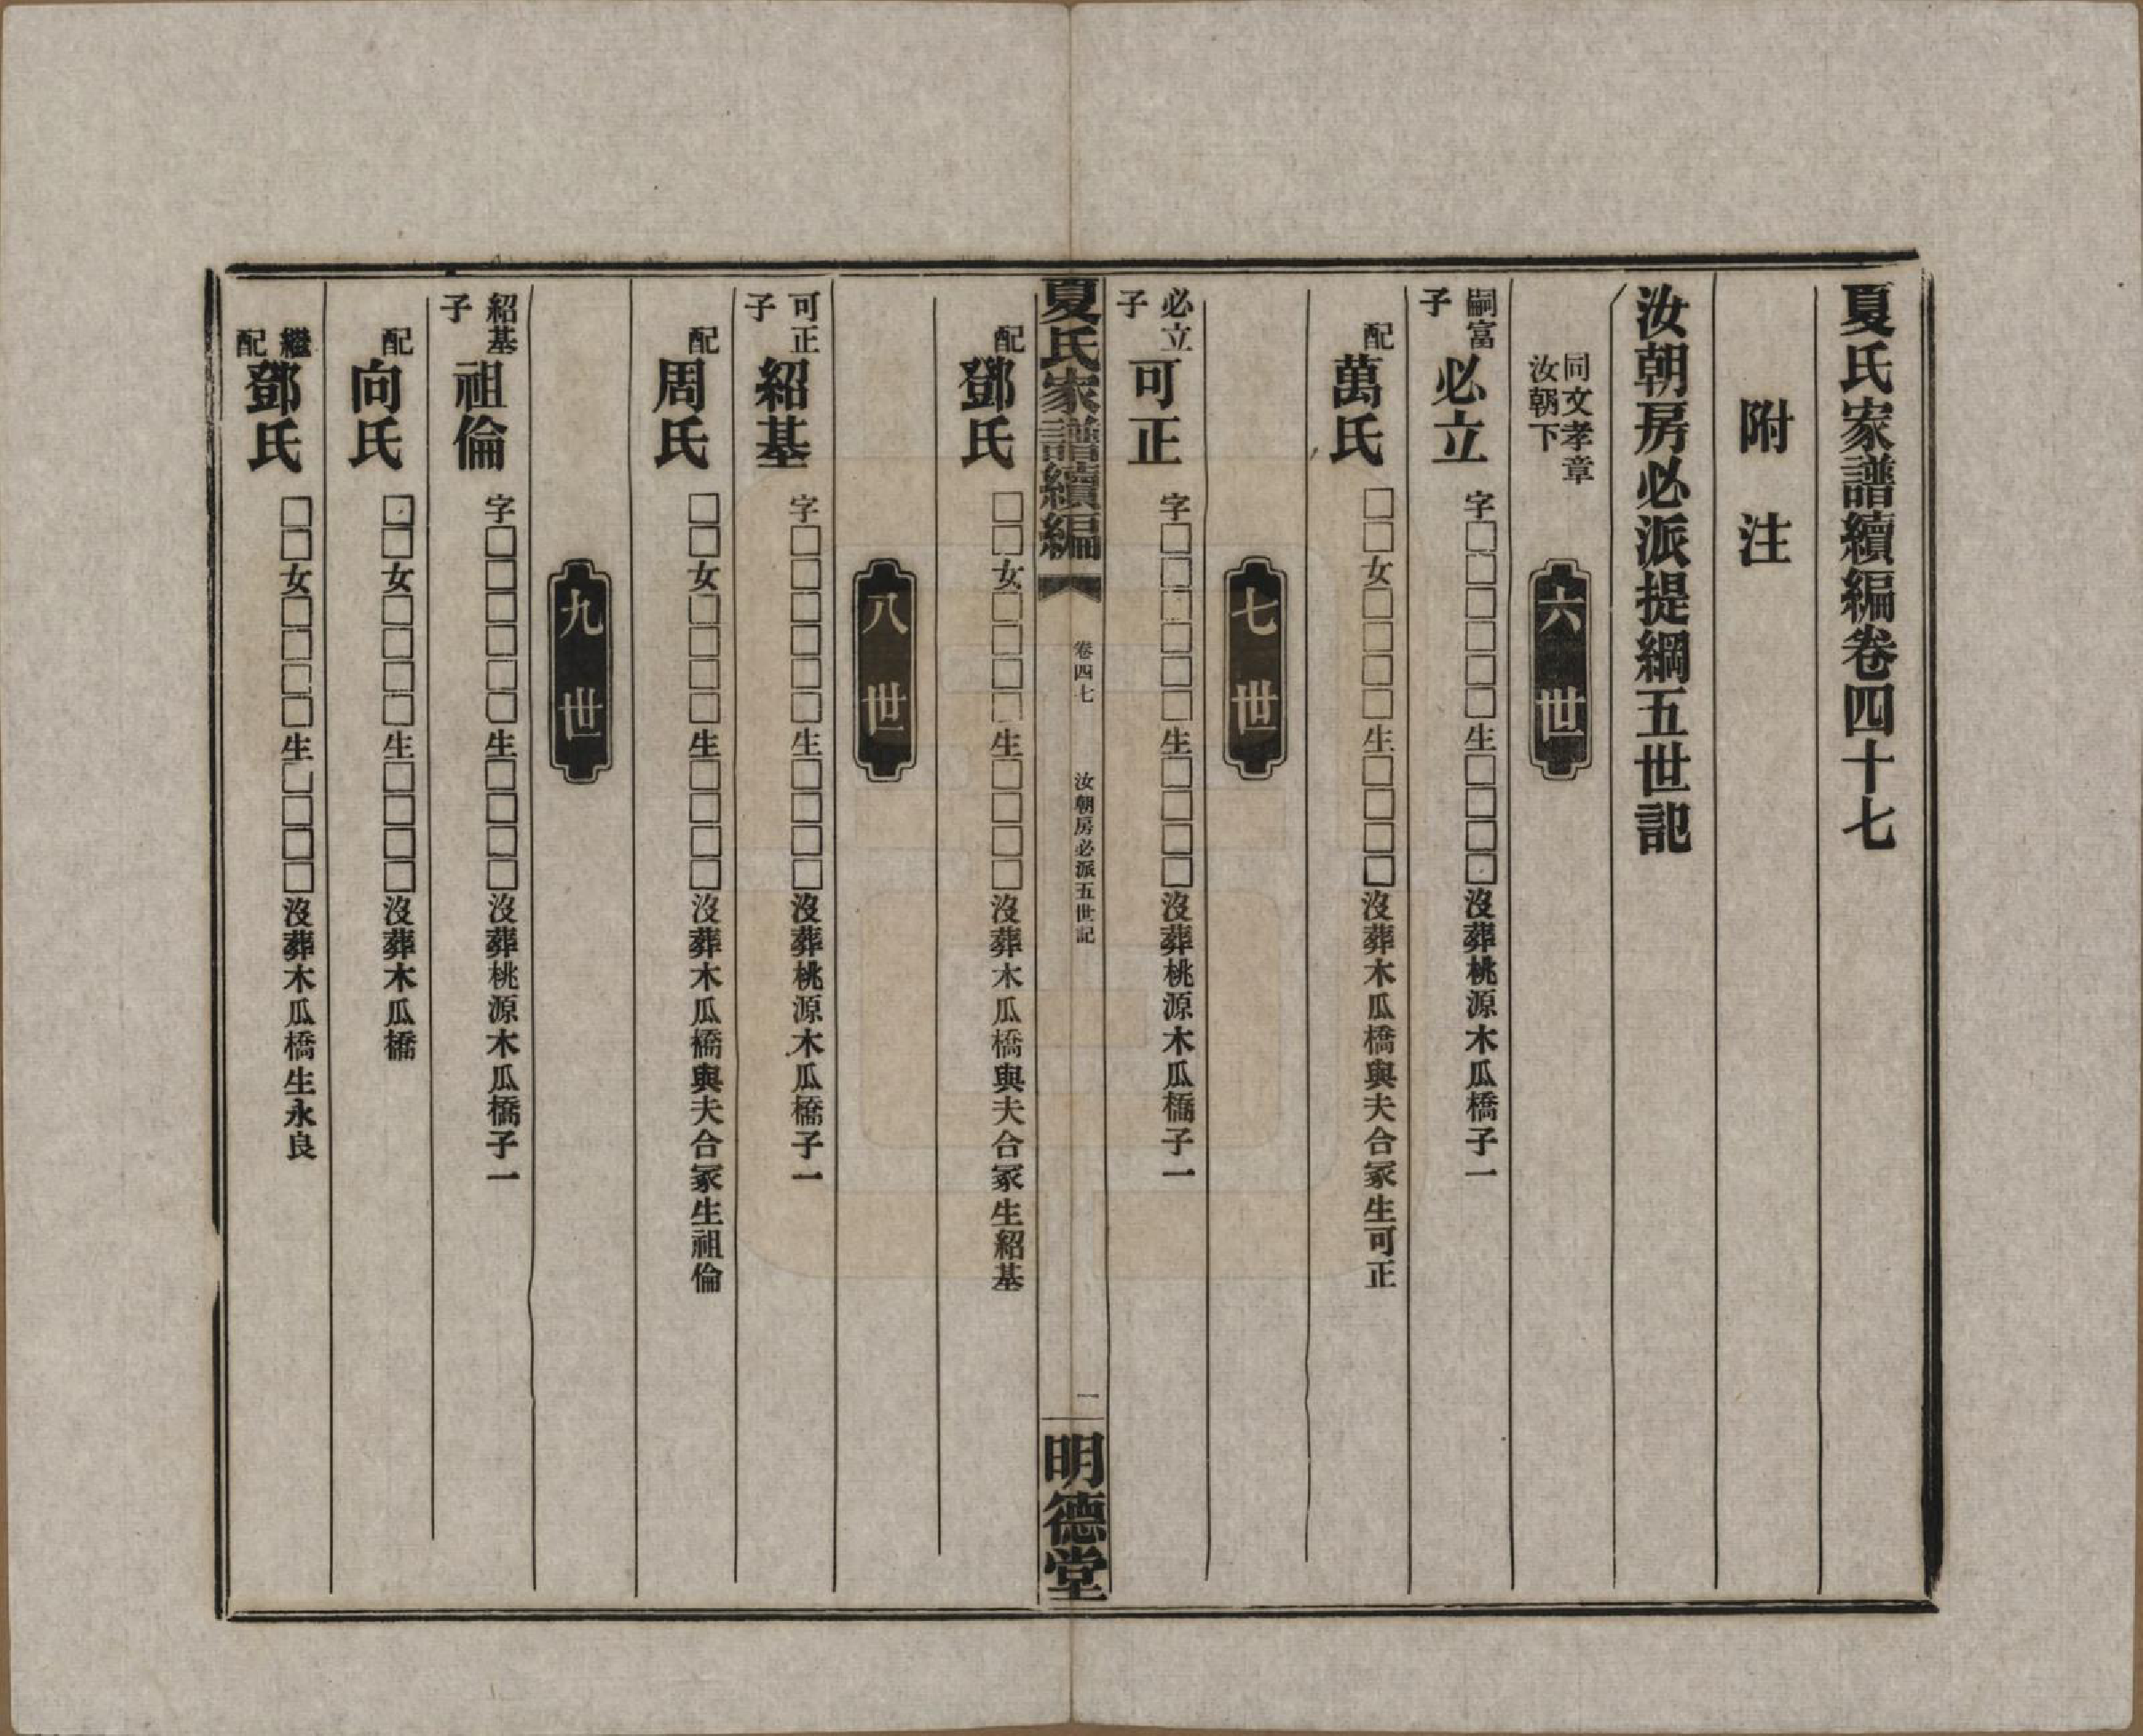 夏氏家譜續編卷四十七
附注
汝朝房必派提綱五世記
同文孝章
汝朝下
六世
嗣富
子
必立
字□□□□□□生□□□□沒葬桃源木瓜橋子一
配
萬氏
□□女□□□□生□□□□沒葬木瓜橋與夫合冢生可正
七世
必立
子
可正
字□□□□□□生□□□□沒葬桃源木瓜橋子一
夏氏家譜續編
卷四七
汝朝房必派五世記
一
明德堂
配
鄧氏
□□女□□□□生□□□□沒葬木瓜橋與夫合冢生紹基
八世
可正
子
紹基
字□□□□□□生□□□□沒葬桃源木瓜橋子一
配
周氏
□□女□□□□生□□□□沒葬木瓜橋與夫合冢生祖倫
九世
紹基
子
祖倫
字□□□□□□生□□□□沒葬桃源木瓜橋子一
配
向氏
□□女□□□□生□□□□沒葬木瓜橋
繼
配
鄧氏
□□女□□□□生□□□□沒葬木瓜橋生永良